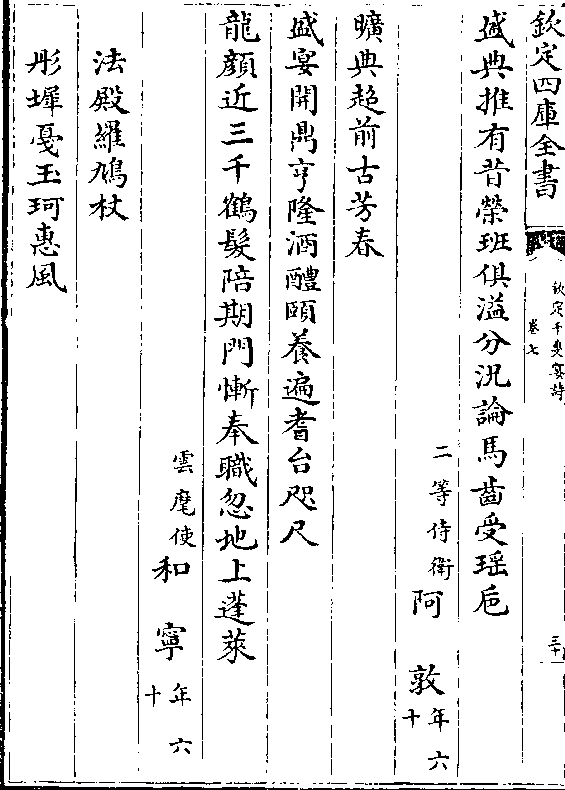 欽定四庫全書
欽定千叟宴詩
卷七
三十
盛典推有昔榮班俱溢分況論馬齒受瑶巵
二等侍衛阿敦年六十
曠典超前古芳春
盛宴開鼎亨隆酒醴頤養遍耆台咫尺
龍顔近三千鶴髮陪期門慚奉職忽地上蓬萊
雲麾使和寧年六十
法殿羅鳩杖
彤墀戞玉珂惠風